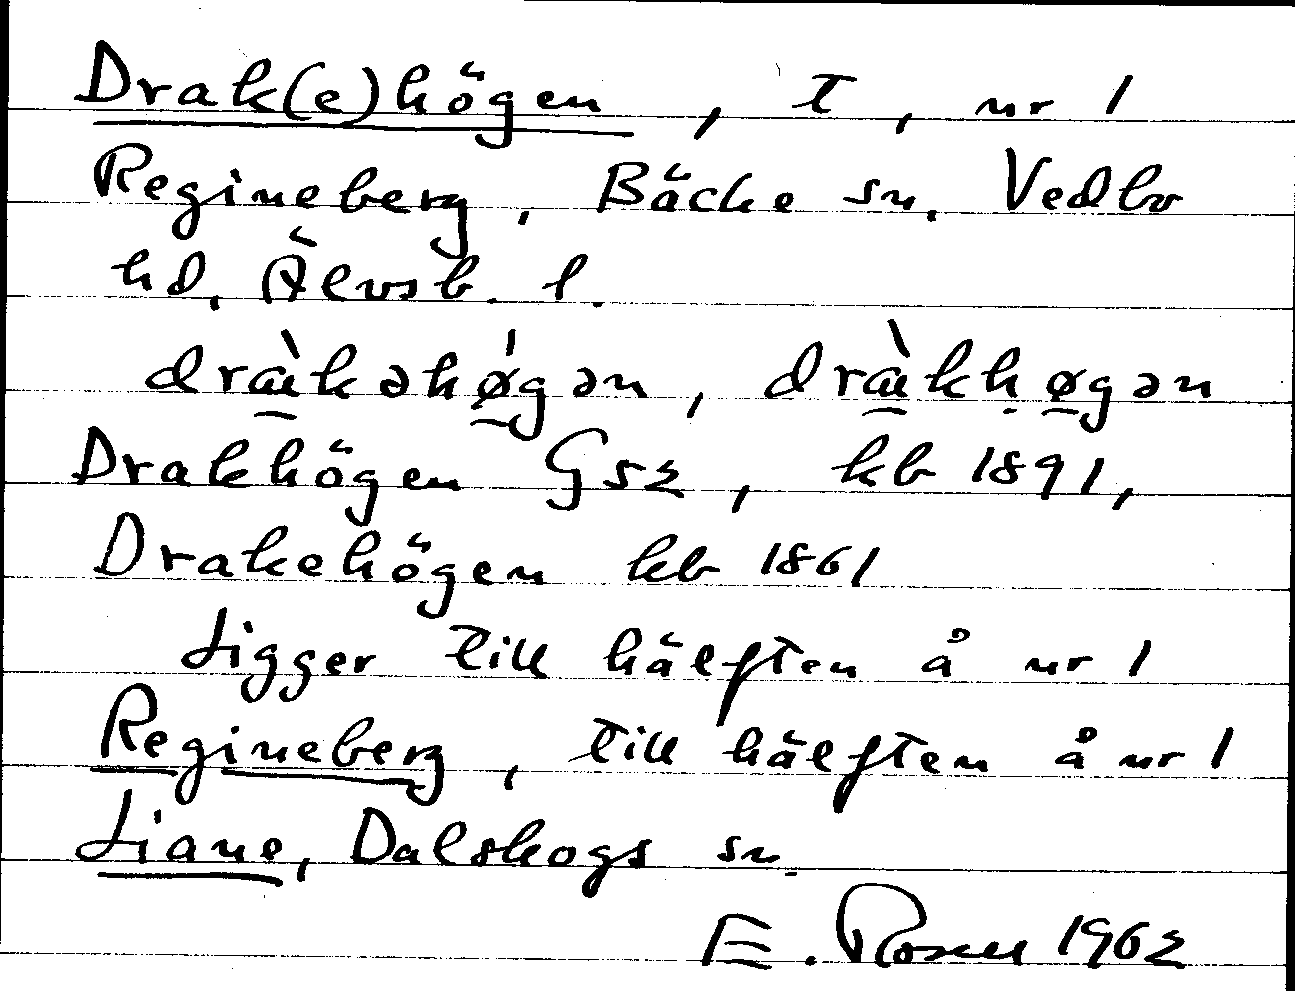 Drak(e)högen, t, nr 1
Regineberg, Bäcke sn. Vedbo
hd. Älvsb. l.
dræ̀kəhǿgən, dræ̀kḥøgən
Drakhögen G52, kb 1891,
Drakehögen kb 1861
Ligger till hälften å nr 1
Regineberg, till hälften å nr 1
Liane, Dalskogs sn.
E. Rosell 1962